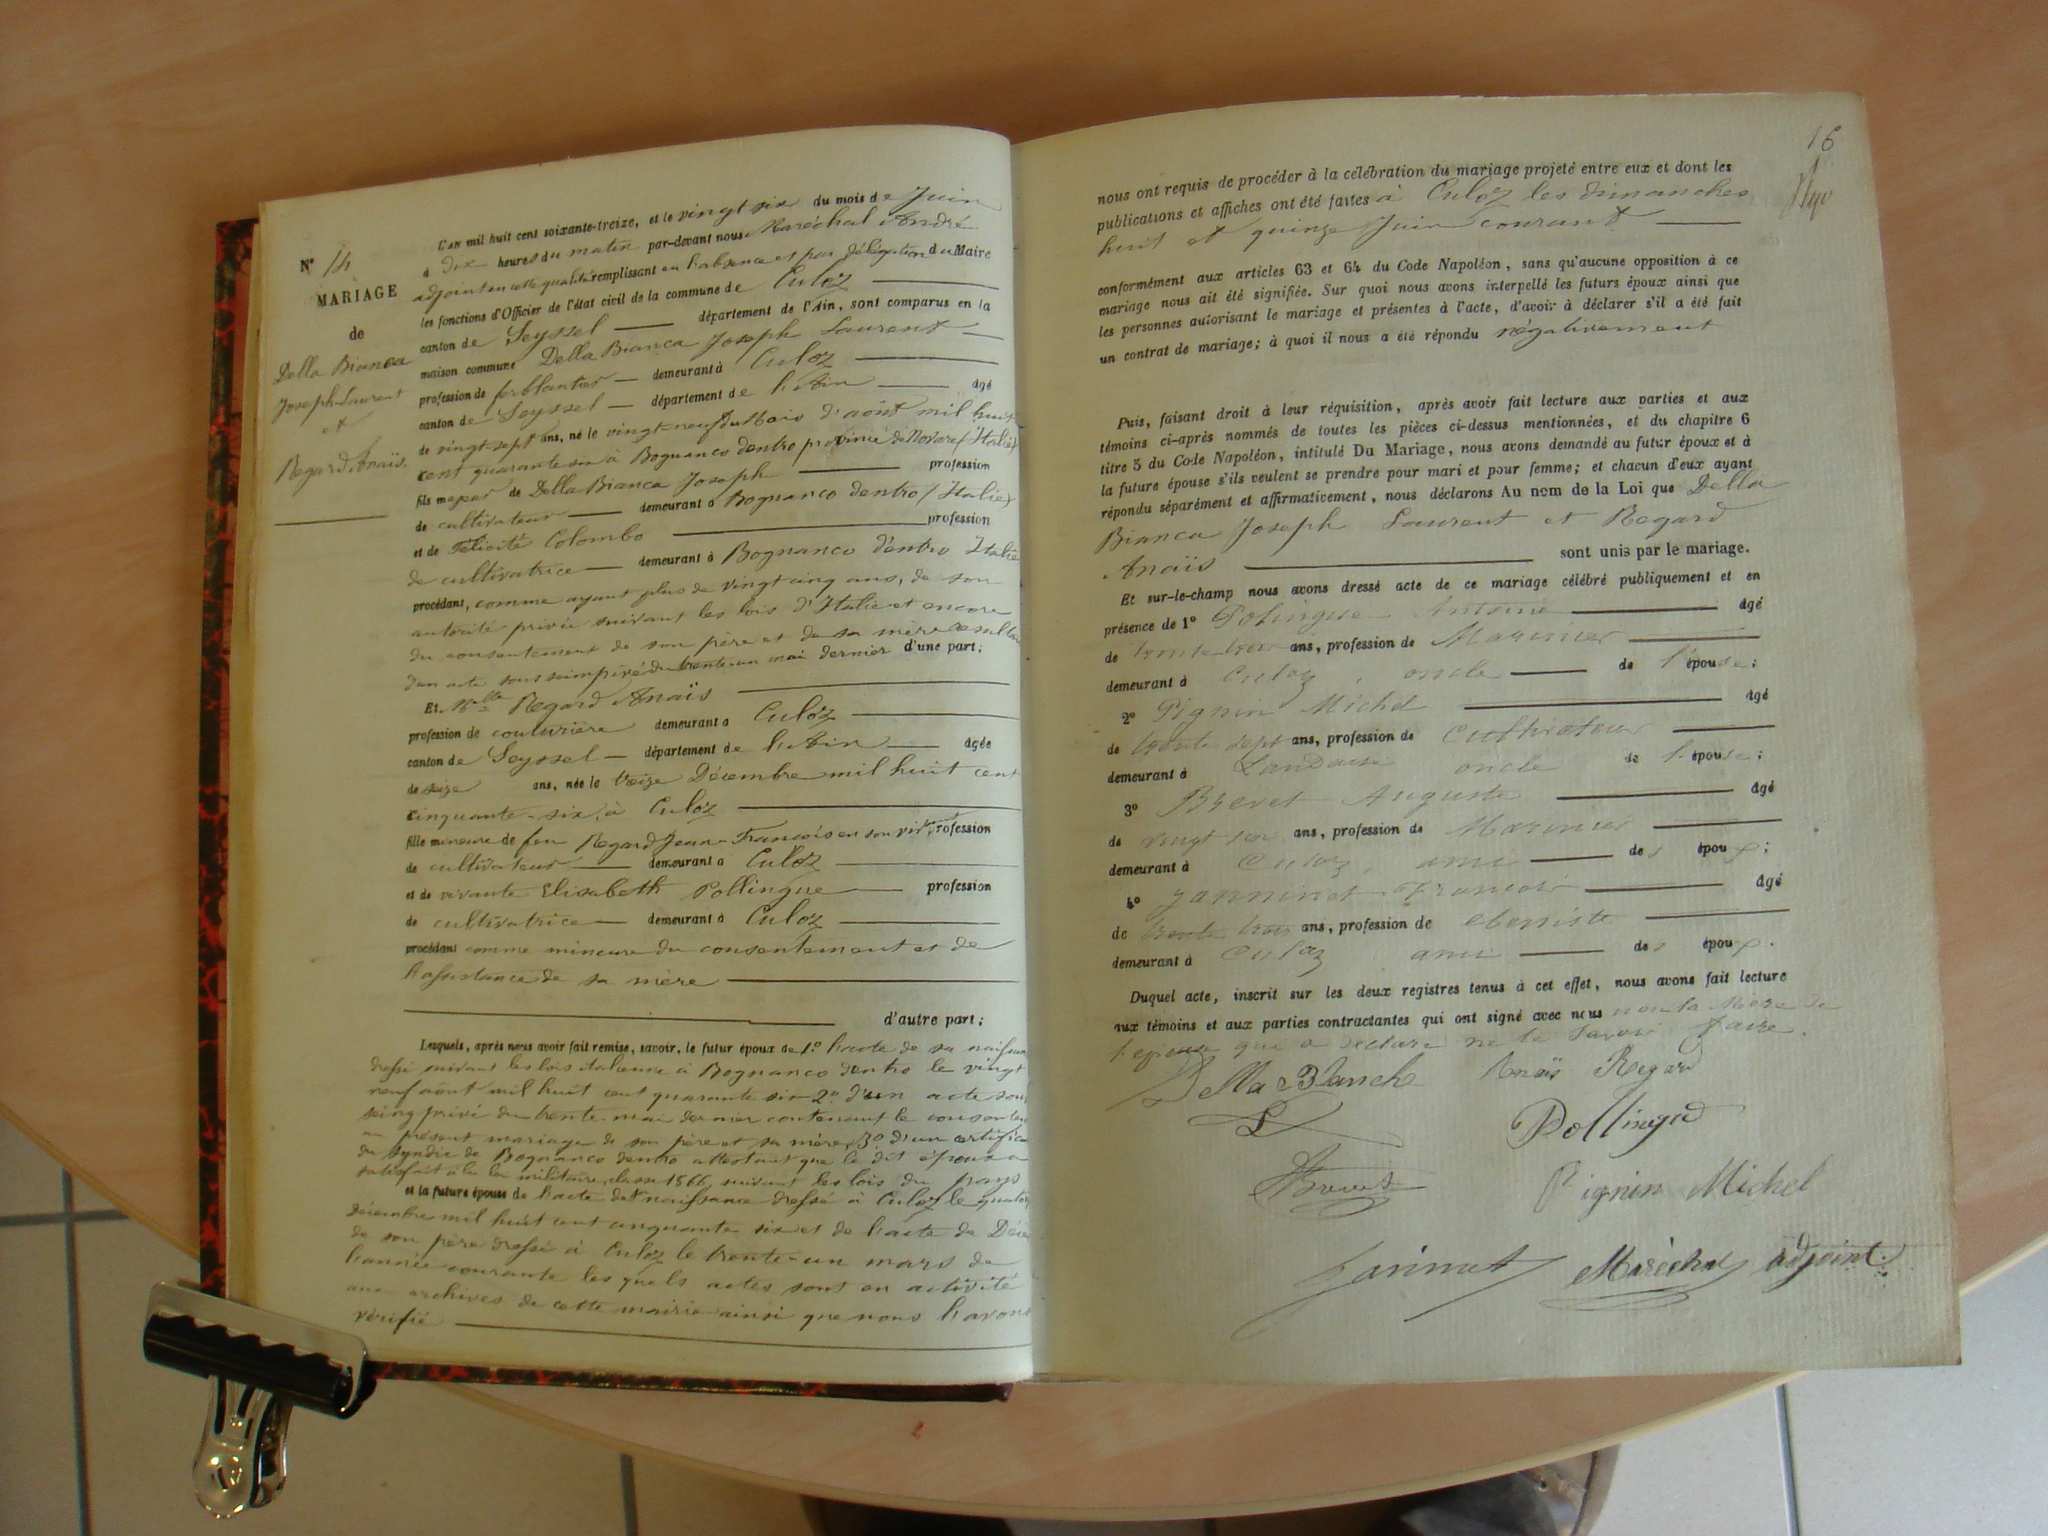 N° 14
MARIAGE
de
Della Bianca
Joseph-Laurent
et
Regard Anaïs.
L'an mil huit cent soixante-treize, et le vingt six du mois de Juin
à dix heures du matin par-devant nous Maréchal André
adjoint en cette qualité remplissant en l'absence et par délégation du Maire
les fonctions d'Officier de l'état civil de la commune de Culoz
canton de Seyssel département de l'Ain, sont comparus en la
maison commune Della Bianca Joseph Laurent
profession de ferblantier demeurant à Culoz
canton de Seyssel département de l'Ain âgé
de vingt-sept ans, né le vingt-neuf du Mois d'août mil huit
cent quarante six à Bognanco dentro province de Novare (Italie)
fils majeur de Della Bianca Joseph profession
de cultivateur demeurant à Bognanco dentro (Italie)
et de Félicité Colombo profession
de cultivatrice demeurant à Bognanco dentro Italie
procédant, comme ayant plus de vingt cinq ans, de son
autorité privée suivant les lois d'Italie et encore
du consentement de son père et de sa mère
d'un acte sous seing privé du trente-un mai dernier d'une part;
Et Melle Regard Anaïs
profession de couturière demeurant à Culoz
canton de Seyssel département de l'Ain âgée
de seize ans, née le treize Décembre mil huit cent
cinquante-six, à Culoz
fille mineure de feu Regard Jean-François en son vivant profession
de cultivateur demeurant à Culoz
et de vivante Elisabeth Pollingue profession
de cultivatrice demeurant à Culoz
procédant comme mineure du consentement et de
l'assistance de sa mère
d'autre part;
Lesquels, après nous avoir fait remise, savoir, le futur époux de 1° l'acte de sa
dressé suivant les lois italiennes à Bognanco dentro le vingt
neuf août mil huit cent quarante six 2° d'un acte sous
seing privé du trente mai dernier contenant le
au présent mariage de son père et sa mère, 3° d'un
du Syndic de Bognanco dentro attestant que le dit époux a
satisfait à la loi militaire, classe 1866, suivant les lois du pays
et la future épouse de l'acte de naissance dressé à Culoz le
décembre mil huit cent cinquante six et de l'acte de
de son père dressé à Culoz le trente-un mars de
l'année courante les quels actes sont en activité
aux archives de cette mairie ainsi que nous l'avons
vérifié
16
nous ont requis de procéder à la célébration du mariage projeté entre eux et dont les
publications et affiches ont été faites à Culoz les dimanches
huit et quinze Juin courant
conformément aux articles 63 et 64 du Code Napoléon, sans qu'aucune opposition à ce
mariage nous ait été signifiée. Sur quoi nous avons interpellé les futurs époux ainsi que
les personnes autorisant le mariage et présentes à l'acte, d'avoir à déclarer s'il a été fait
un contrat de mariage; à quoi il nous a été répondu négativement
Puis, faisant droit à leur réquisition, après avoir fait lecture aux parties et aux
témoins ci-après nommés de toutes les pièces ci-dessus mentionnées, et du chapitre 6
titre 5 du Code Napoléon, intitulé Du Mariage, nous avons demandé au futur époux et à
la future épouse s'ils veulent se prendre pour mari et pour femme; et chacun d'eux ayant
répondu séparément et affirmativement, nous déclarons Au nom de la Loi que Della
Bianca Joseph Laurent et Regard
Anaïs sont unis par le mariage.
Et sur-le-champ nous avons dressé acte de ce mariage célébré publiquement et en
présence de 1° Polingue Antoine âgé
de trente trois ans, profession de Marinier
demeurant à Culoz, oncle de l'épouse;
2° Pignin Michel âgé
de trente sept ans, profession de Cultivateur
demeurant à oncle de l'épouse;
3° Brevet Auguste âgé
de vingt six ans, profession de Marinier
demeurant à Culoz, ami des époux;
4° Janninet François âgé
de trente trois ans, profession de ebeniste
demeurant à Culoz ami des époux.
Duquel acte, inscrit sur les deux registres tenus à cet effet, nous avons fait lecture
aux témoins et aux parties contractantes qui ont signé avec nous non la Mère de
l'epouse qui a declaré ne le savoir faire.
Della Bianch Anaïs Regard
Pollingue
Brevet
Pignin Michel
Janinet Maréchal adjoint